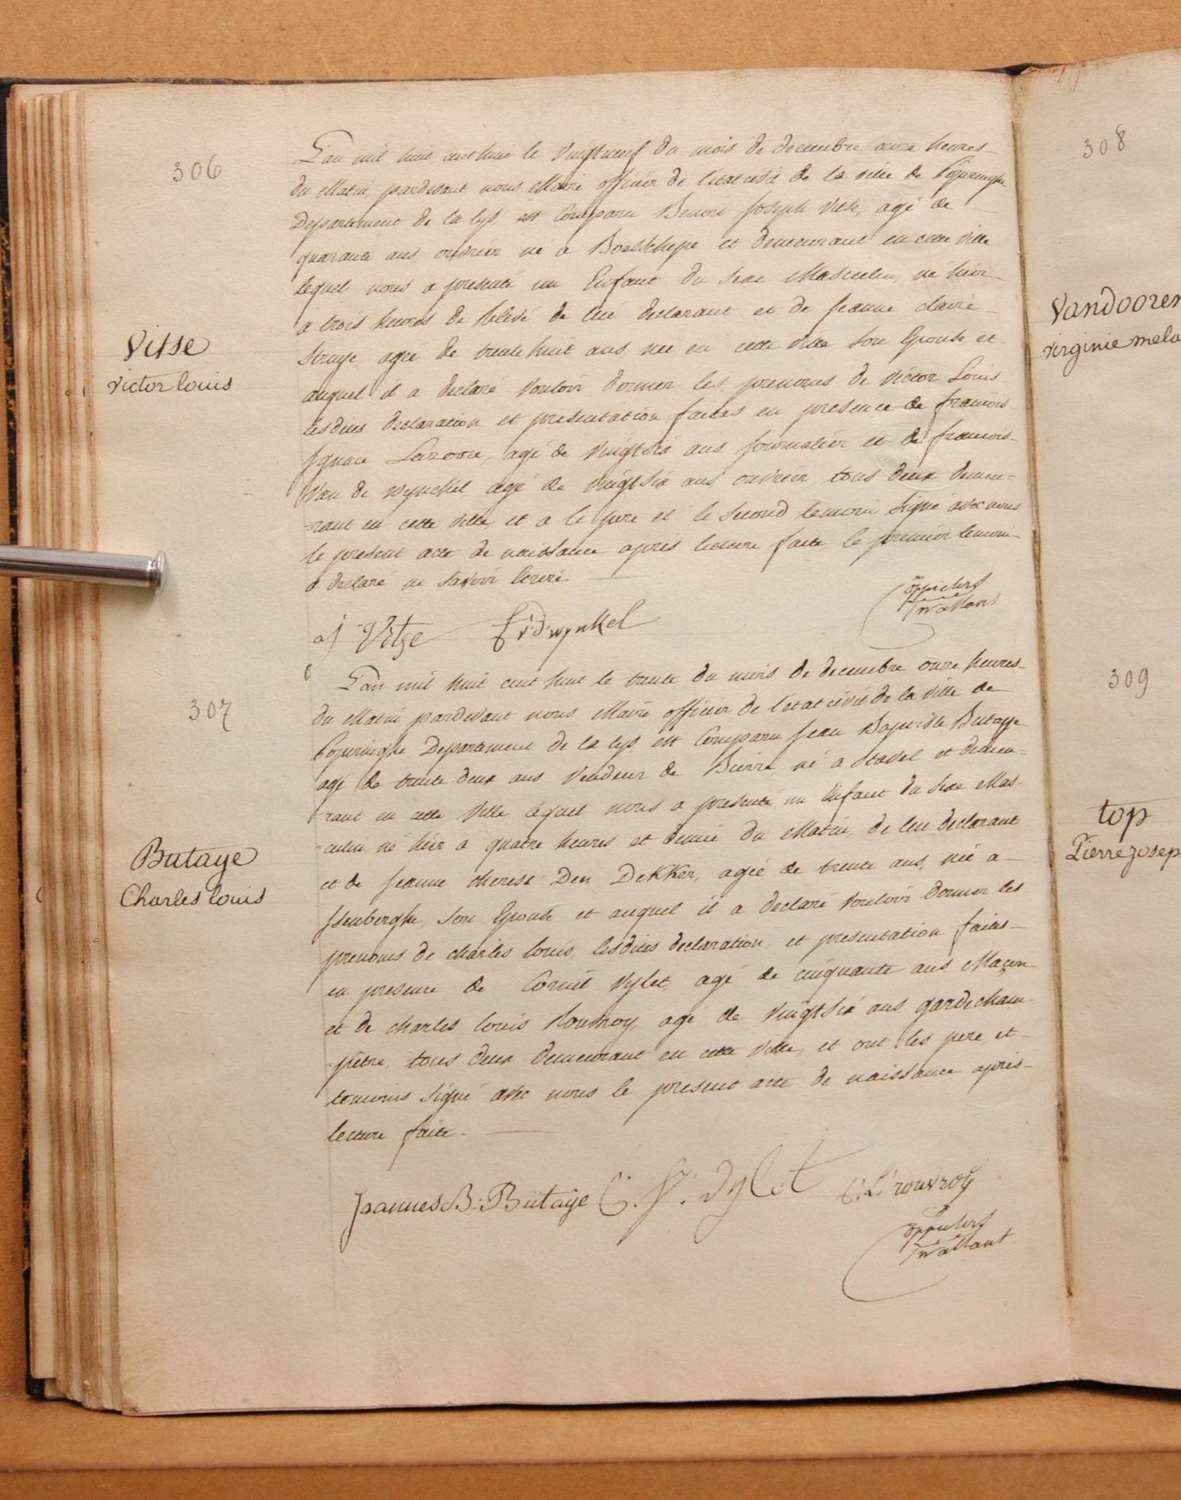 306
L'an mil huit cent huit le vingtneuf du mois de decembre onze heures
du Matin pardevant nous Maire officier de l'etat civil de la ville de Poperinghe
Departement de la Lys est Comparu Benoit Joseph Vitse, agé de
quarante ans ouvrier né a Boeschepe et demeurant en cette ville
lequel nous a presenté un Enfant du sexe Masculin, né hier
a trois heures de Relevé de lui declarant et de Jeanne claire
Struye agée de trente huit ans née en cette ville son Epouse et
auquel il a declaré vouloir donner les prenoms de Victor Louis
lesdites declaration et presentation faites en presence de francois
Ignace, agé de vingt six ans Journalier et de francois
Van de wynckel agé de vingt six ans ouvrier tous deux demeu-
-rant en cette ville et a le pere et le second temoin signé avec nous
le present acte de naissance apres lecture faite le premier temoin
a declaré ne savoir Ecrire
Vitse
Victor louis
Vitse f: v: d: wynkel
307
L'an mil huit cent huit le trente du mois de decembre onze heures
du Matin pardevant nous Maire officier de l'etat civil de la ville de
Poperinghe Departement de la Lys est Comparu Jean Baptiste Butaye
agé de trente deux ans Vendeur de Bierre né a Stavel et demeu-
-rant en cette Ville lequel nous a presenté un Enfant du sexe Mas-
-culin, né hier a quatre heures et demie du Matin, de lui declarant
et de Jeanne therese Den Dekker, agée de trente ans, née a
Isenberghe, son Epouse et auquel il a declaré vouloir donner les
prenoms de Charles louis, lesdites declaration et presentation faites
en presence de Vylet, agé de cinquante ans Maçon
et de charles louis Rouvroy, agé de vingt six ans gardecham-
-pêtre, tous deux demeurant en cette Ville, et ont les pere, et
temoins signé avec nous le present acte de naissance apres
lecture faite.
Butaye
Charles louis
Joannes B: Butaÿe C. F. Vylet C: L: rouvroy
308
Vandooren
virginie mela
309
top
Pierre Josep